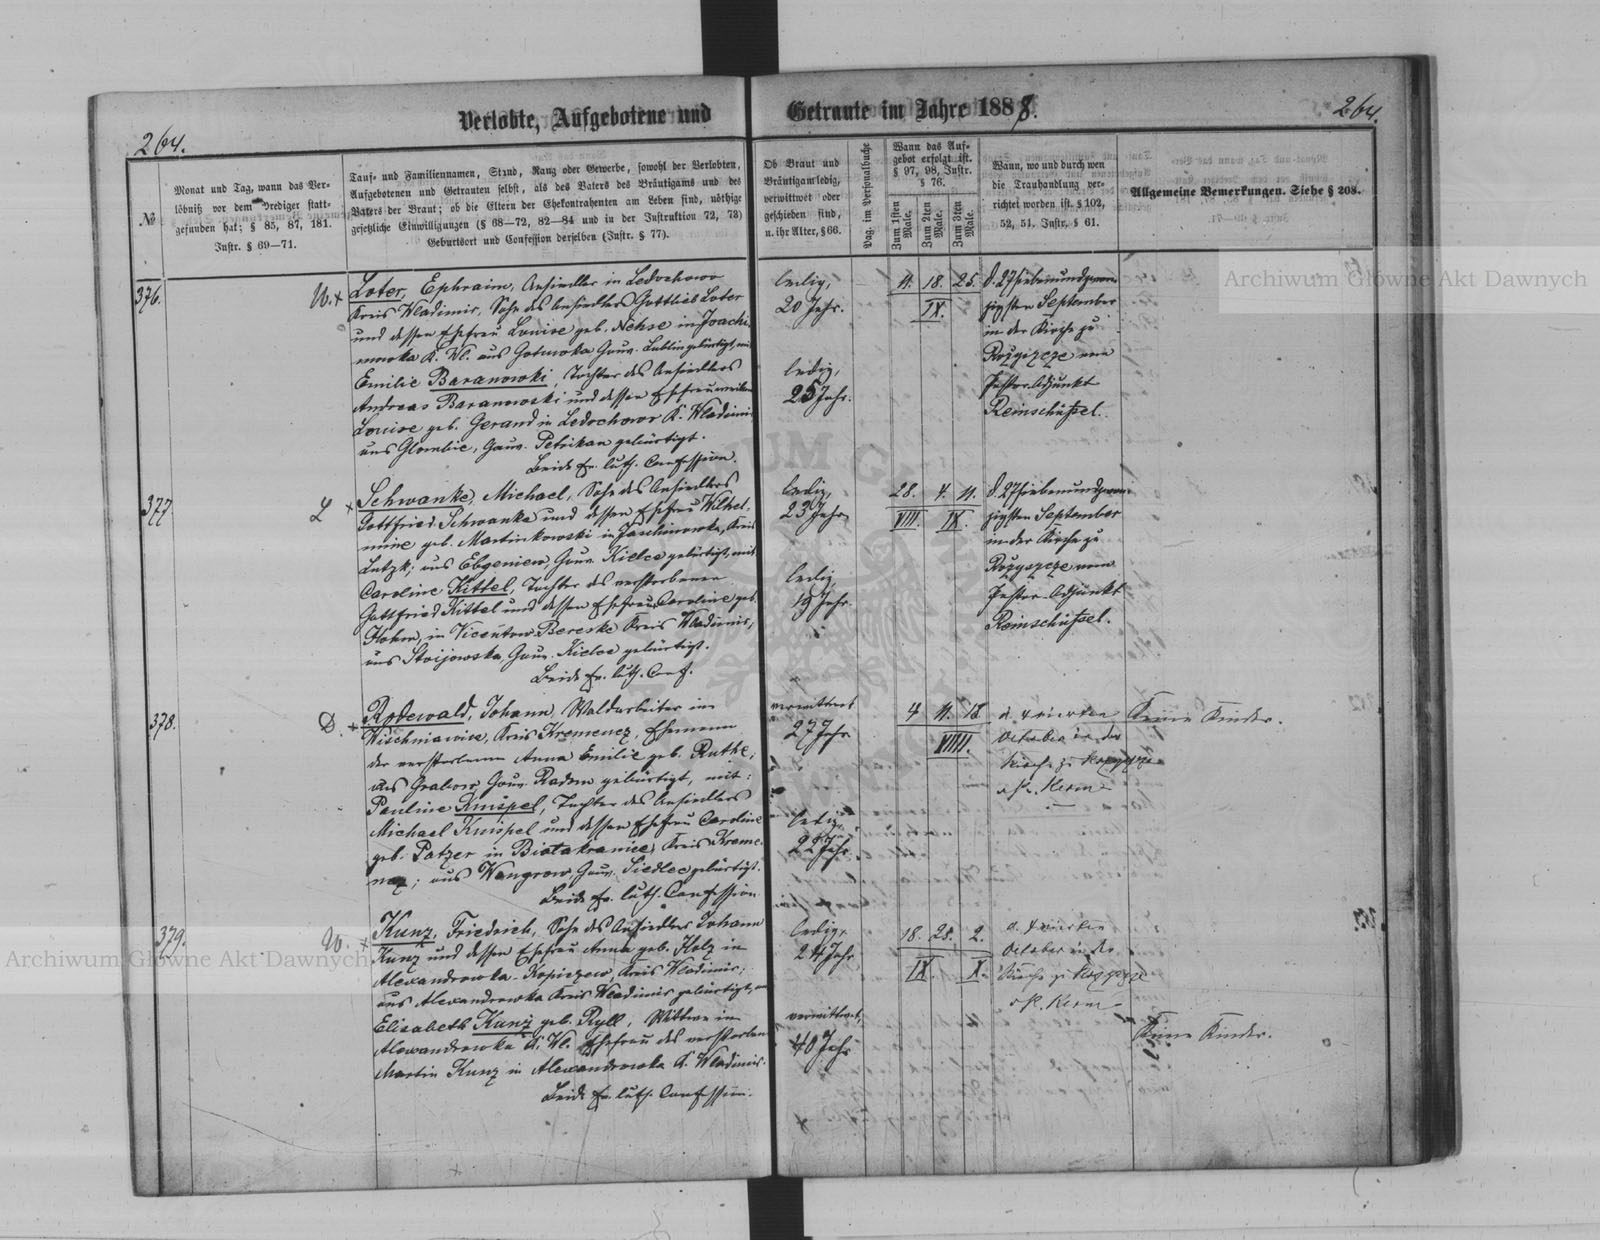 264.
Verlobte, Aufgebotene und Getraute im Jahre 1888.
264.
№
Monat und Tag, wann das Ver-
löbniß vor dem Prediger statt-
gefunden hat; § 85, 87, 181.
Instr. § 69—71.
Tauf- und Familiennamen, Stand, Rang oder Gewerbe, sowohl der Verlobten,
Aufgebotenen und Getrauten selbst, als des Vaters des Bräutigams und des
Vaters der Braut; ob die Eltern der Ehekontrahenten am Leben sind, nöthige
gesetzliche Einwilligungen (§ 68—72, 82—84 und in der Instruktion 72, 73)
Geburtsort und Confession derselben (Instr. § 77).
Ob Braut und
Bräutigam ledig,
verwittwet oder
geschieden sind,
u. ihr Alter, § 66.
Pag. im Personalbuche
Wann das Auf-
gebot erfolgt ist.
§ 97, 98, Instr.
§ 76.
Zum 1sten Male.
Zum 2ten Male.
Zum 3ten Male.
Wann, wo und durch wen
die Trauhandlung ver-
richtet worden ist. § 102,
52, 51. Instr. § 61.
Allgemeine Bemerkungen. Siehe § 208.
376.
W. x
Loter, Ephraim, Ansiedler in Ledochowo
Kreis Wladimir, Sohn des Ansiedlers Gottlieb Loter
und dessen Ehefrau Louise geb. Nehse in Joachi-
mowka K. Wl. aus Gouv. Lublin gebürtigt, mit
Emilie Baranowski, Tochter des Ansiedlers
Andreas Baranowski und dessen Ehefrau
Louise geb. Gerand in Ledochowo K. Wladimir
aus Glombie, Gouv. Petrikau gebürtigt.
Beide Ev. luth. Confession.
ledig,
20 Jahr.
ledig,
25 Jahr.
11. 18. 25.
IX.
d. 27 siebenundzwan-
zigsten September
in der Kirche zu
Rozyszcze vom
Pastor-Adjunkt
Reinschüssel.
377.
L x
Schwanke, Michael, Sohn des Ansiedlers
Gottfried Schwanke und dessen Ehefrau Wilhel-
mine geb. Martinkowski in Jaschinowka, Kreis
Lutzk; aus Ebgeniew, Gouv. Kielce gebürtigt, mit
Caroline Kittel, Tochter des verstorbenen
Gottfried Kittel und dessen Ehefrau Caroline geb.
Hohm, in Vicentow-Bereske Kreis Wladimir,
aus Stoijowska Gouv. Kielce gebürtigt.
Beide Ev. luth. Conf.
ledig,
23 Jahr
ledig
19 Jahr.
28. 4. 11.
VIII. IX.
d. 27 siebenundzwan-
zigsten September
in der Kirche zu
Rozyszcze vom
Pastor-Adjunkt
Reinschüssel.
378.
D. x
Rodewald, Johann, Waldarbeiter in
Wischniawice, Kreis Kremenez, Ehemann
der verstorbenen Anna Emilie geb. Ruthe,
aus Grabow, Gouv. Radom gebürtigt, mit:
Pauline Knispel, Tochter des Ansiedlers
Michael Knispel und dessen Ehefrau Caroline
geb. Patzer in Biatakranice, Kreis Kreme-
nez; aus Wengrow, Gouv. Siedlce gebürtigt.
Beide Ev. luth. Confession.
verwittwet
27 Jahr
ledig,
22 Jahr.
4 11. 18
VIIII.
d. 4 vierten
October in der
Kirche zu Rozyszcze
Keine Kinder.
379.
W. x
Kunz, Friedrich, Sohn des Ansiedlers Johann
Kunz und dessen Ehefrau Anna geb. Holz in
Alexandrowka-Kopiczew, Kreis Wladimir;
aus Alexandrowka Kreis Wladimir gebürtigt, mit
Elisabeth Kunz geb. Ryll, Wittwe in
Alexandrowka K. Wl. Ehefrau des verstorben.
Martin Kunz in Alexandrowka K. Wladimir.
Beide Ev. luth. Confession.
ledig,
24 Jahr
verwittwet,
40 Jahr
18. 25. 2.
IX. X.
d. 4 vierten
October in der
Kirche zu Rozyszcze
Keine Kinder.
Archiwum Główne Akt Dawnych
Archiwum Główne Akt Dawnych